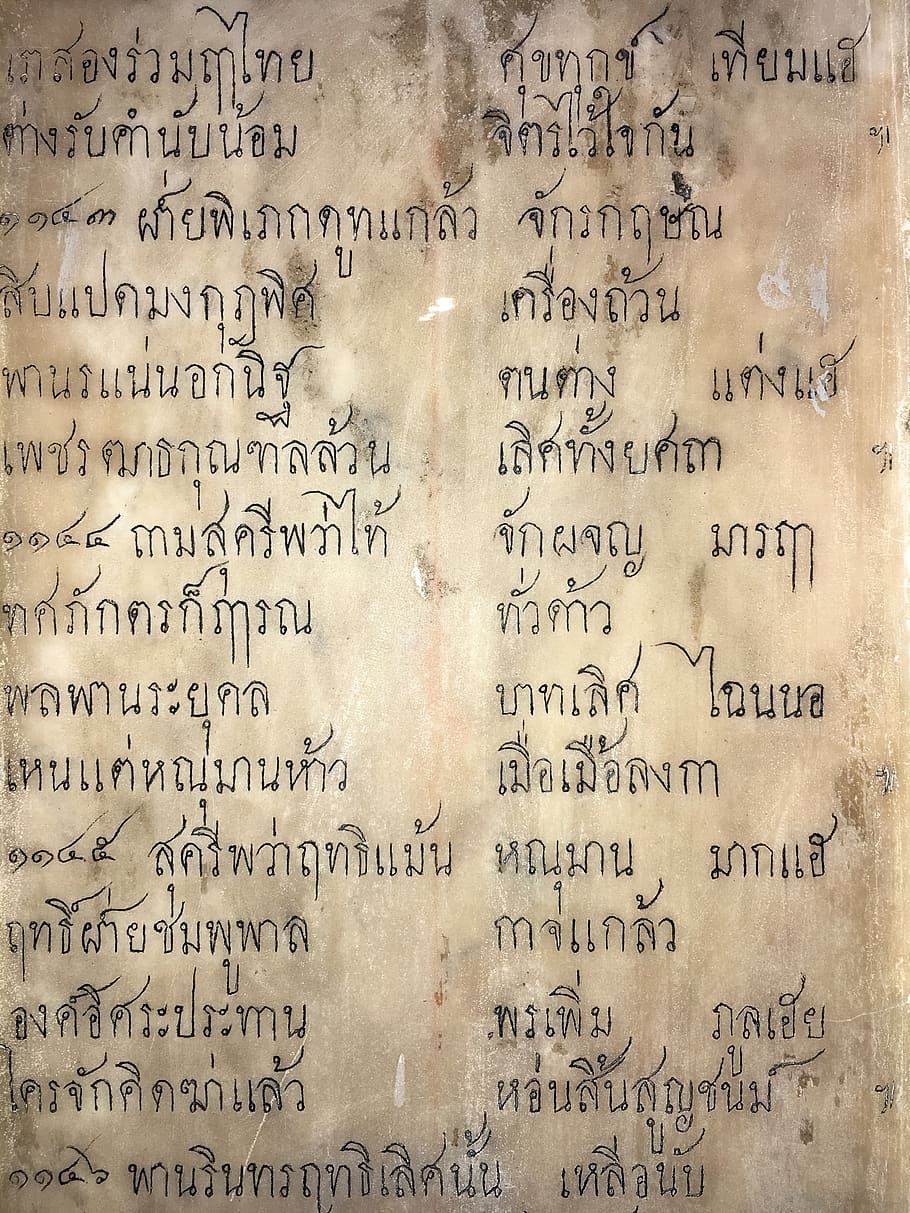 เราสองร่วมฤๅไทย ศุขทุกข์ เทียมแฮ
ต่างรับคำนับน้อม จิตรไว้ใจกัน ๚
๑๑๔๓ ฝ่ายพิเภกดูทแกล้ว จักรกฤษณ
สิบแปดมงกุฎพิศ เครื่องถ้วน
พานรแน่นอกนิฐ ตนต่าง แต่งแฮ
เพชร กุณฑลล้วน เลิศทั้งยศถา ๚
๑๑๔๔ ถามสุครีพว่าไท้ จักผจญ มารฤๅ
ทศภักตรก็ฤๅรณ ทั่วด้าว
พลพานระยุคล บาทเลิศ ไฉนนอ
เหนแต่หณุมานห้าว เมื่อเมือลงกา ๚
๑๑๔๕ สุครีพว่าฤทธิแม้น หณุมาน มากแฮ
ฤทธิ์ฝ่ายชมพูพาล กาจแกล้ว
องค์อิศระประทาน พรเพิ่ม ภูลเฮย
ใครจักคิดฆ่าแล้ว หอ่นสิ้นสูญชนม์ ๚
๑๑๔๖ พานรินทรฤทธิเลิศนั้น เหลือนับ